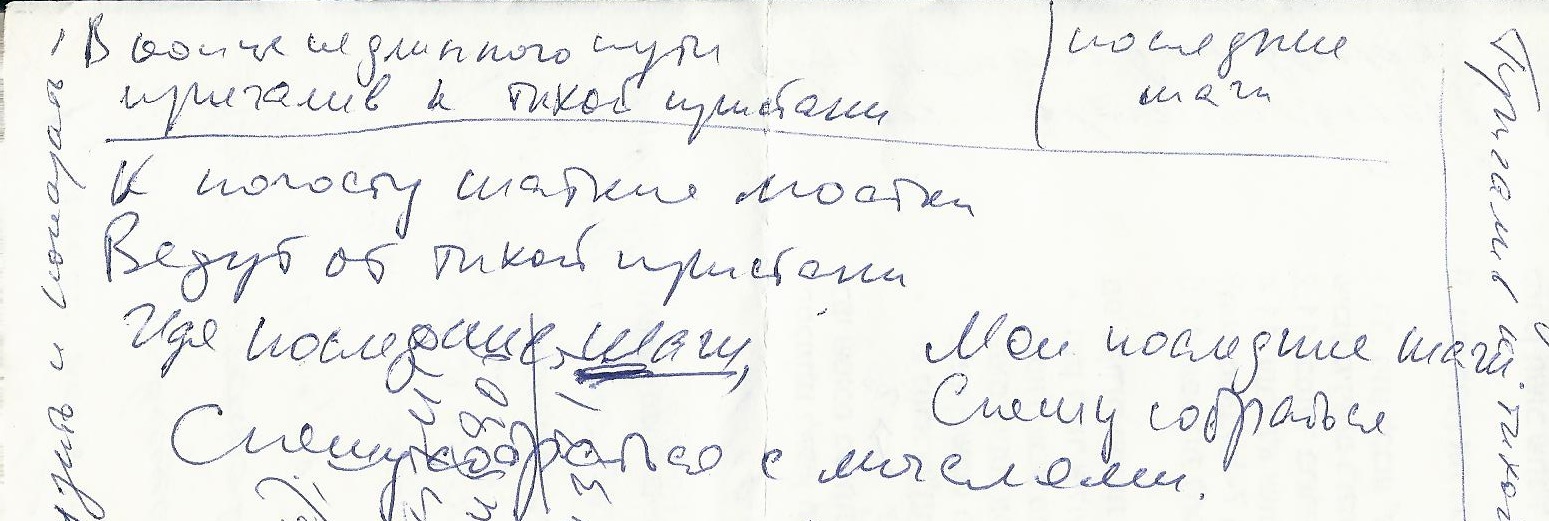 В конце не длинного пути
причалив к тихой пристани
последние
шаги
К погосту шаткие мостки
Ведут от тихой пристани
Идя последние, шаги,
Спешу собраться с мыслями.
Мои последние шаги.
Спешу собраться
Причалив к тихой